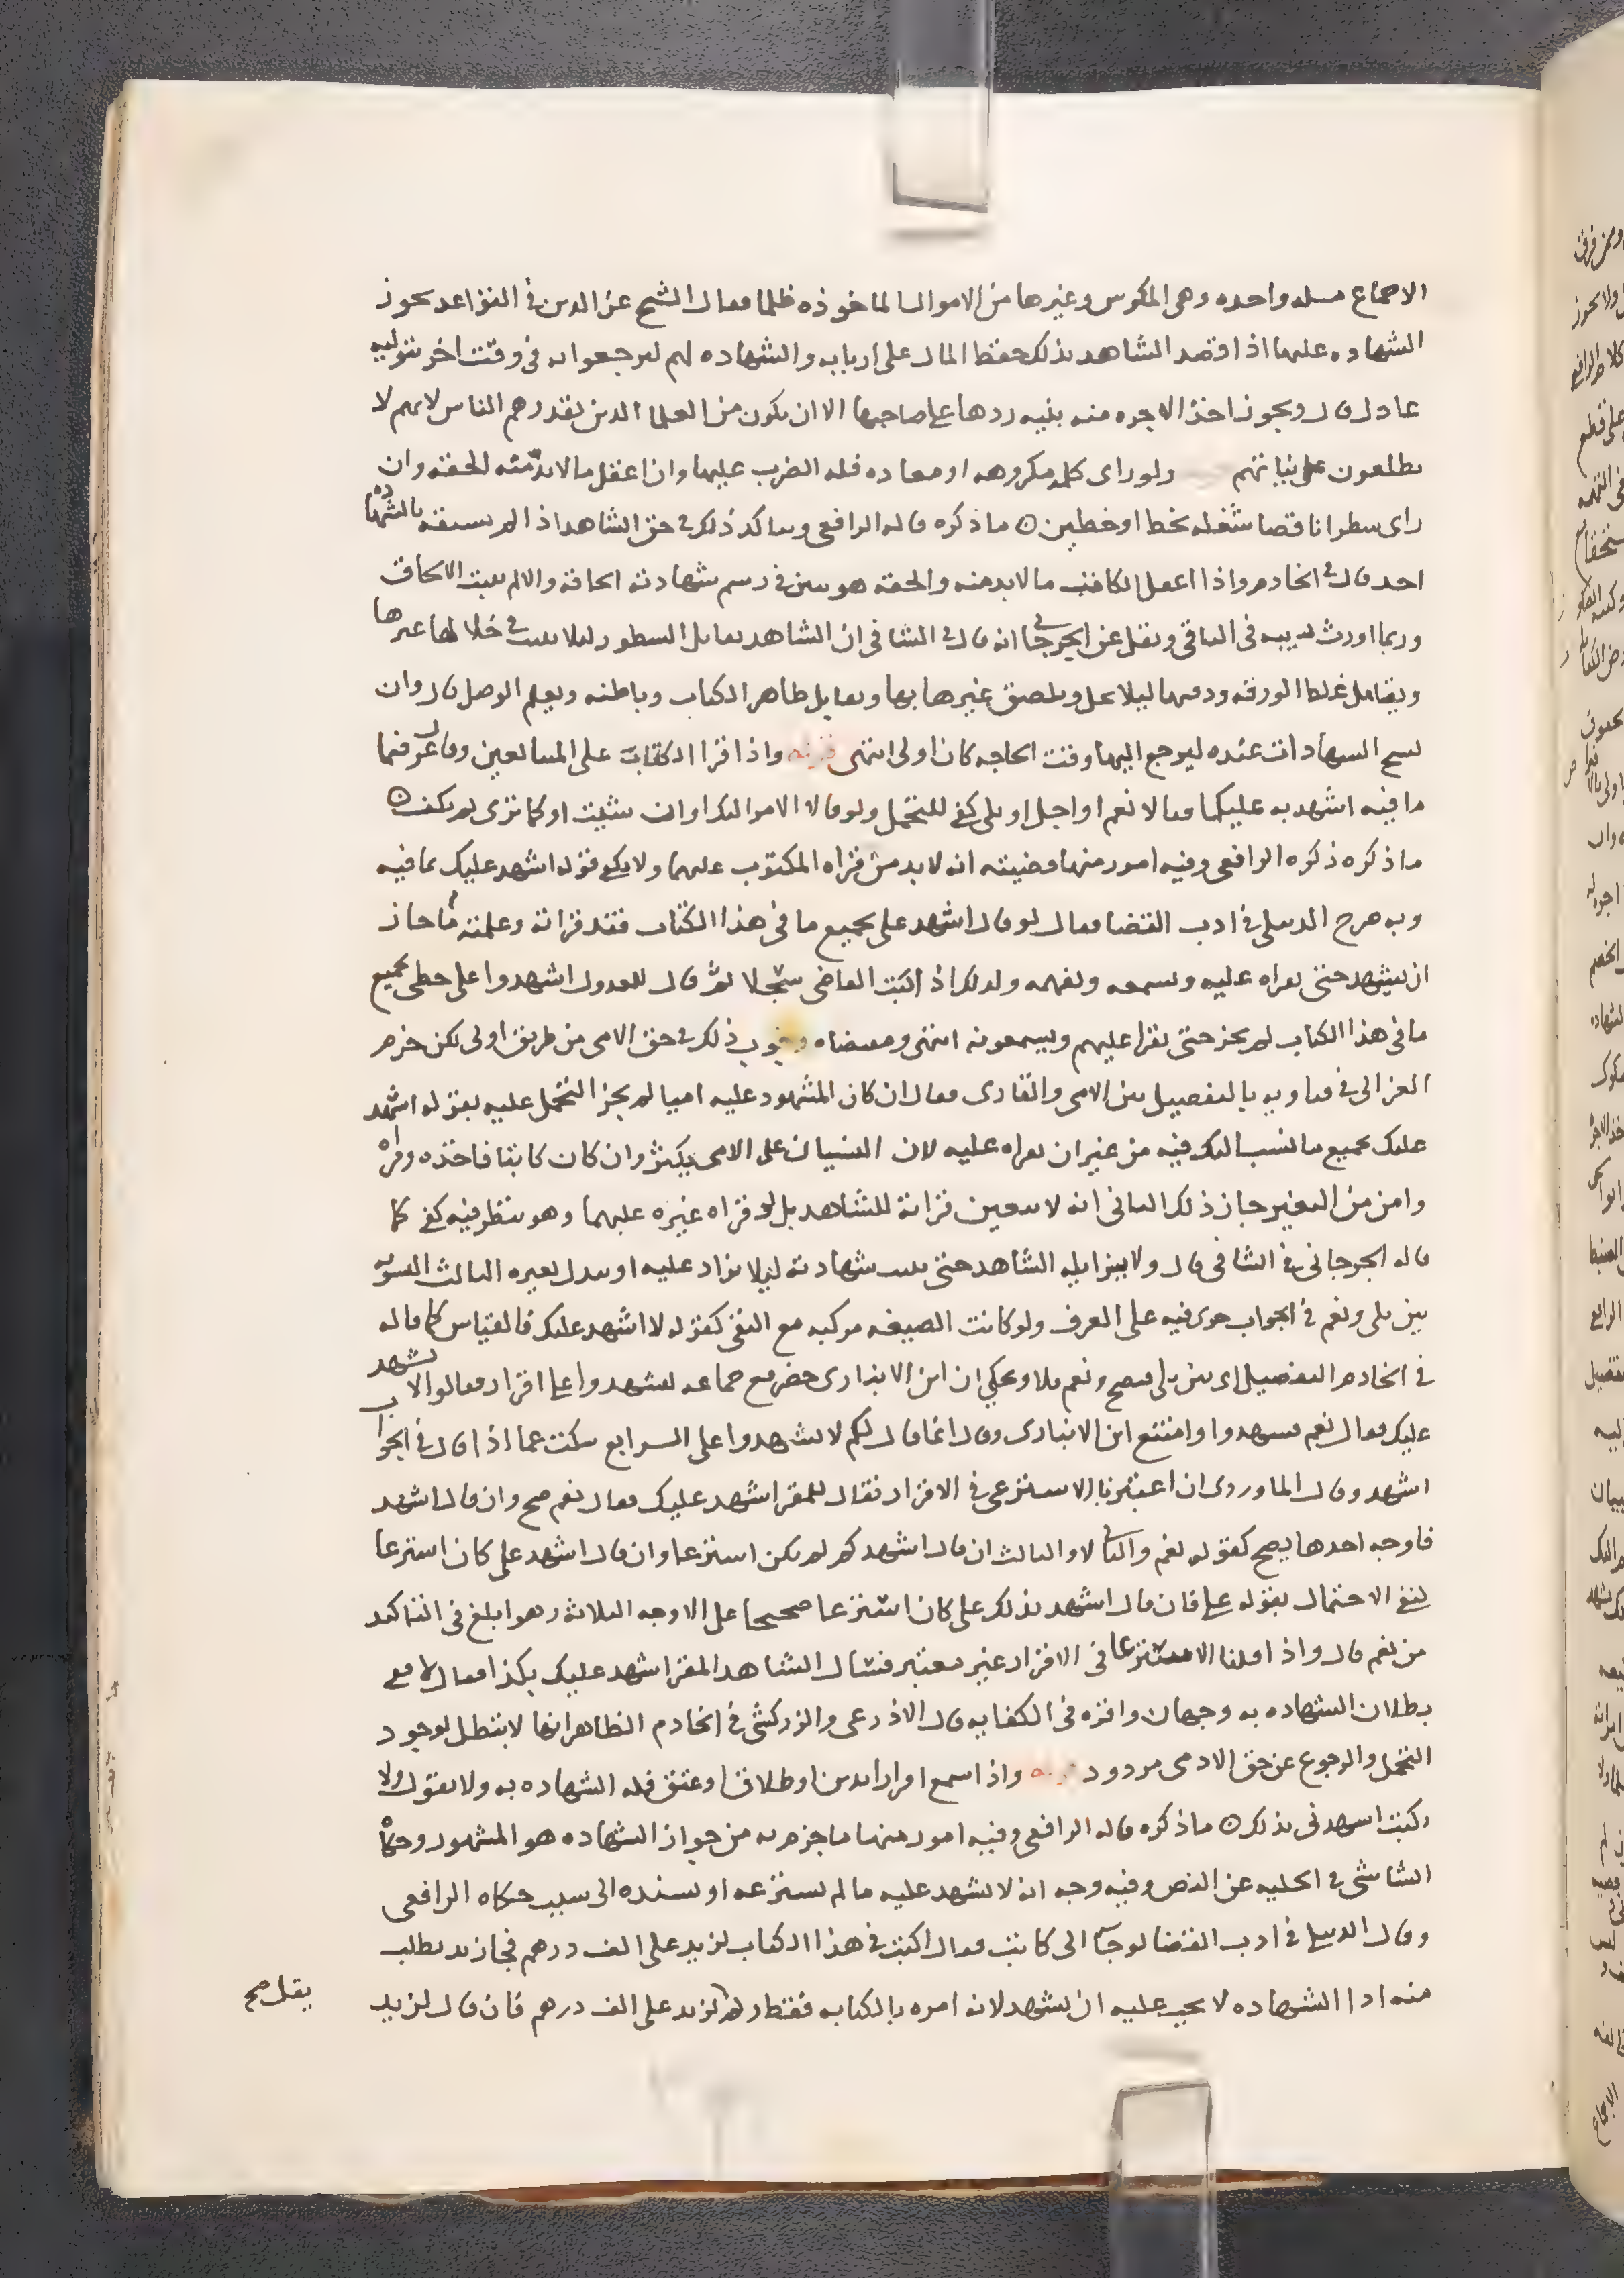 الاجماع مسله واحده وهى المكوس وغيرها من الاموال الماخوذه ظلما فقال الشيخ عز الدين في القواعد يجوز
الشهاده عليها اذا قصد الشاهد بذلك حفظ المال على اربابه والشهاده لهم ليرجعوا به في وقت اخر بتوليه
عادل قال ويجوز اخذ الاجره منه بنيه ردها على صاحبها الا ان يكون من العلما الذين يقتدى بهم الناس لانهم لا
يطلعون على نياتهم ولو راى كلمه مكروهه او معاده فله الضرب عليها وان اغفل ما لا بد منه الحقه وان
راى سطرا ناقصا شغله بخط او خطين ما ذكره قاله الرافعي ويتاكد ذلك في حق الشاهد اذا لم يسبقه بالشهاده
احد قال في الخادم واذا اغفل الكاتب ما لا بد منه والحقه هو بين في رسم شهادته الحاقه والا لم يثبت الالحاق
وربما اورث ريبه في الباقي ونقل عن الجرجاني انه قال في الشافي ان الشاهد يتامل السطور ليلا يثبت في خلالها غيرها
ويتامل غلظ الورقه ودقتها ليلا يحل ويلصق غيرها بها ويقابل ظاهر الكتاب وباطنه ويعلم الوصل قال وان
نسخ الشهادات عنده ليرجع اليها وقت الحاجه كان اولى انتهى قوله واذا قرا الكتاب على المتبايعين وقال عرفتما
ما فيه اشهد به عليكما فقالا نعم او اجل او بلى كفى للتحمل ولو قالا الامر اليك او ان شيت او كما ترى لم يكف
ما ذكره ذكره الرافعي وفيه امور منها قضيته انه لا بد من قراه المكتوب عليهما ولا يكفي قوله اشهد عليك بما فيه
وبه صرح الدبيلي في ادب القضا فقال لو قال اشهد على بجميع ما في هذا الكتاب فقد قراته وعلمته ما جاز
ان يشهد حتى يقراه عليه ويسمعه ويفهمه ولذلك اذا اثبت القاضي سجلا ثم قال للعدول اشهدوا على خطي بجميع
ما في هذا الكتاب لم يجز حتى يقرا عليهم ويسمعونه انتهى ومقتضاه وجوب ذلك في حق الامي من طريق اولى لكن جزم
الغزالي في فتاويه بالتفصيل بين الامي والقارى فقال ان كان المشهود عليه اميا لم يجز التحمل عليه بقوله اشهد
عليك بجميع ما نسب اليك فيه من غير ان يقراه عليه لان النسيان على الامي يكثر وان كان كاتبا فاخذه وقراه
وامن من التغير جاز ذلك الثاني انه لا يتعين قراته للشاهد بل لو قراه غيره عليهما وهو ينظر فيه كفى كما
قاله الجرجاني في الشافي قال ولا يزايله الشاهد حتى يثبت شهادته ليلا يزاد عليه او يبدل بغيره الثالث التسويه
بين بلى ونعم في الجواب جرى فيه على العرف ولو كانت الصيغه مركبه مع النفى كقوله لا اشهد عليك فالقياس كما قاله
في الخادم التفصيل اى بين بلى فيصح ونعم فلا وحكي ان ابن الانبارى حضر مع جماعه ليشهدوا على اقرار فقالوا الا نشهد
عليك فقال نعم فشهدوا وامتنع ابن الانبارى وقال انما قال لكم لا تشهدوا على الرابع سكت عما اذا قال في الجواب
اشهد وقال الماوردى ان اعتبرنا الاسترعى في الاقرار فقال للمقر اشهد عليك فقال نعم صح وان قال اشهد
فاوجه احدها يصح كقوله نعم والثاني لا والثالث ان قال اشهد كم لم يكن استرعا وان قال اشهد على كان استرعا
لنفى الاحتمال بقوله على فان قال اشهد بذلك على كان استرعا صحيحا على الاوجه الثلاثه وهو ابلغ في التاكيد
من نعم قال واذا قلنا الاسترعا في الاقرار غير معتبر فسال الشاهد المقر اشهد عليك بكذا فقال لا ففي
بطلان الشهاده به وجهان واقره في الكفايه قال الاذرعى والزركشي في الخادم الظاهر انها لا تبطل لوجود
التحمل والرجوع عن حق الادمى مردود قوله واذا سمع اقرارا بدين او طلاق او عتق فله الشهاده به ولا يقول ولا
كنت اشهدني بذلك ما ذكره قاله الرافعي وفيه امور منها ما جزم به من جواز الشهاده هو المشهور وحكاه
الشاشي في الحليه عن النص وفيه وجه انه لا يشهد عليه ما لم يسترعه او يسنده الى سبب حكاه الرافعي
وقال الدبيلي في ادب القضا لو جا الى كاتب فقال اكتب في هذا الكتاب لزيد على الف درهم فجا زيد يطلب
منه ادا الشهاده لا يجب عليه ان يشهد لانه امره بالكتابه فقط ولم لزيد على الف درهم فان قال لزيد
يقل صح